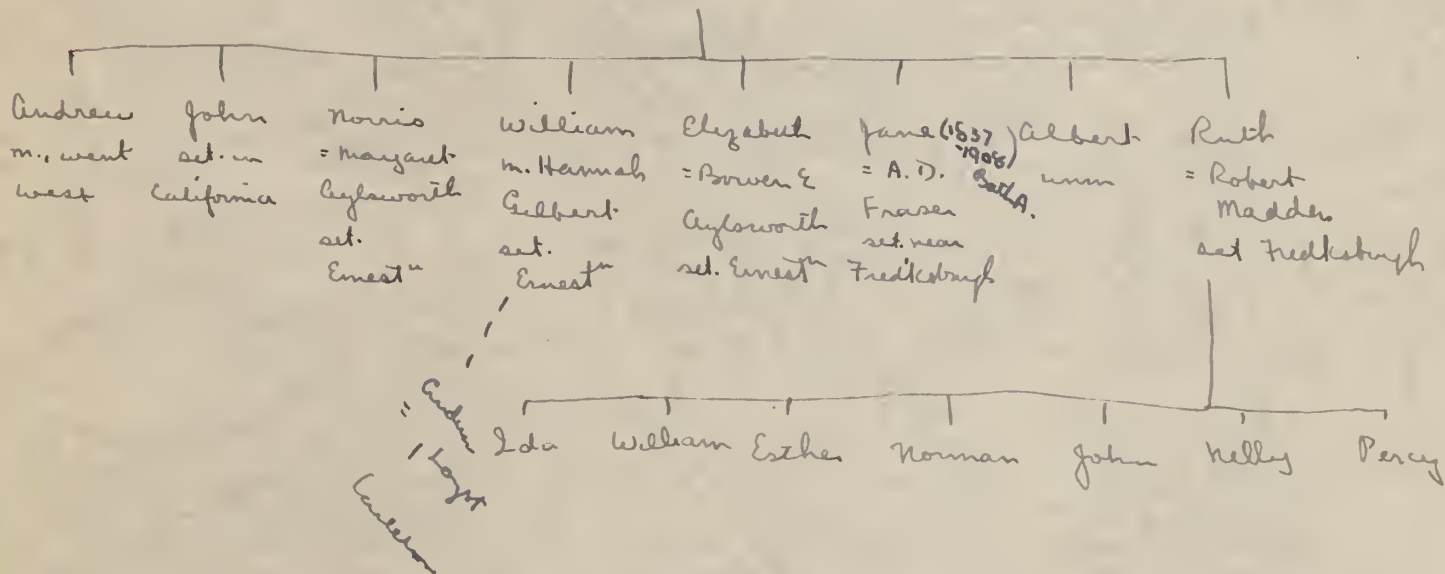 Andrew
m., went
west
John
set. in
California
Norris
= Margaret
Aylsworth
set.
Ernestn
William
m. Hannah
Gilbert
set.
Ernestn
Elizabeth
= Bowen E
Aylsworth
set. Ernestn
Jane (1837
-1908)
= A. D.
Bath A.
Fraser
set. near
Fred'ksburgh
Albert
unm
Ruth
= Robert
Madden
set Fredksburgh
=
Ida
William
Esther
Norman
John
Nelly
Percy